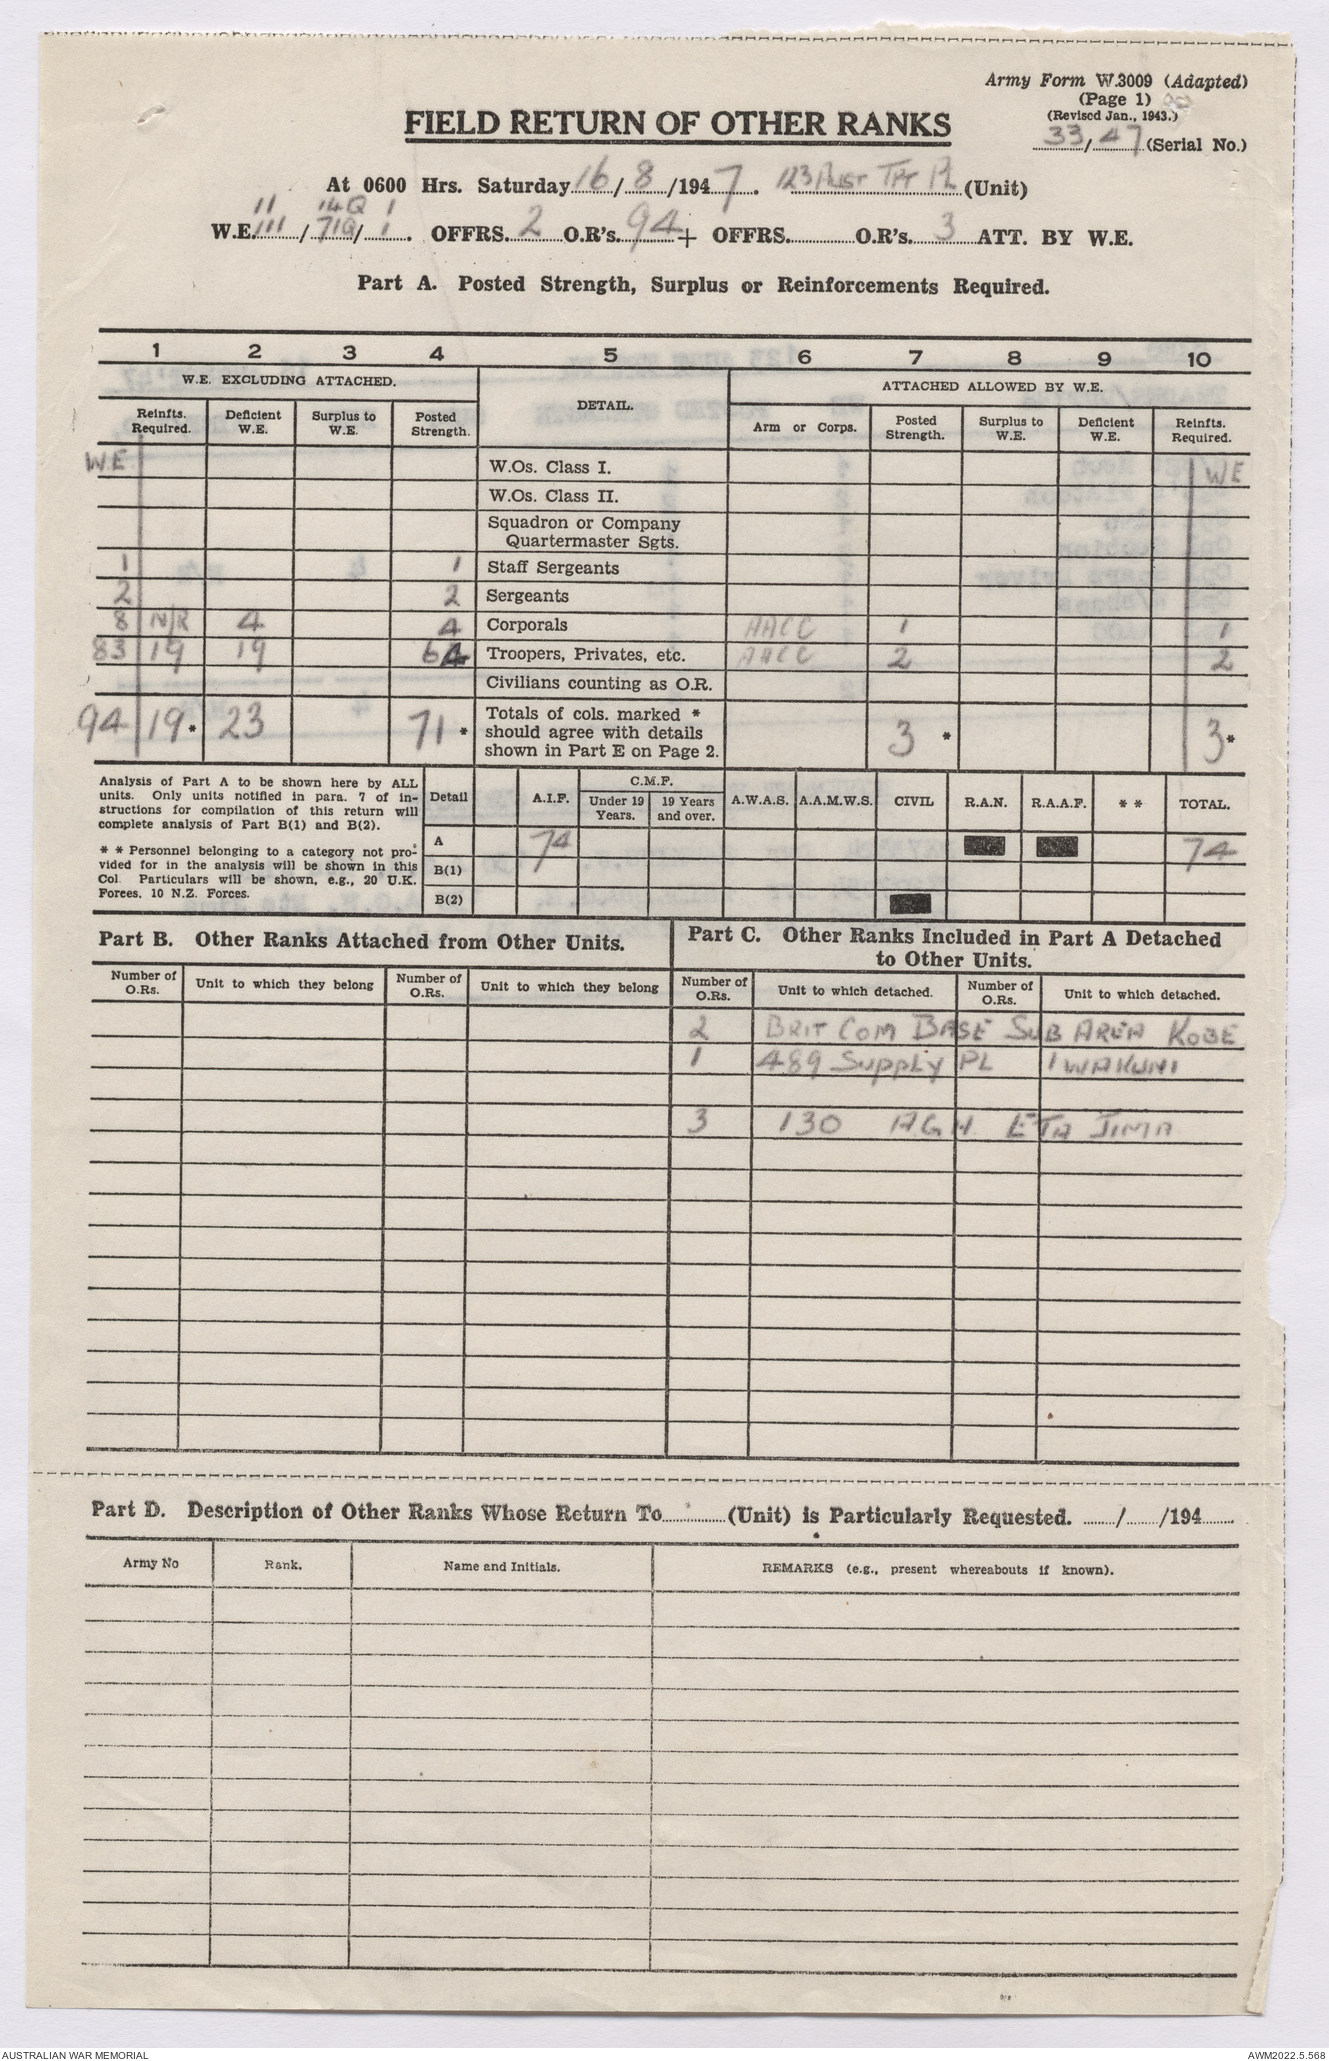 Army Form W.3009 (Adapted)
(Page 1)
(Revised Jan., 1943.)
33/47 (Serial No.)
FIELD RETURN OF OTHER RANKS
At 0600 Hrs. Saturday 16/8/1947. 123 Aust Tpt Pl (Unit)
11 14Q 1
W.E. 111/71Q/1. OFFRS. 2 O.R's. 94 + OFFRS. O.R's. 3 ATT. BY W.E.
Part A. Posted Strength, Surplus or Reinforcements Required.
1 2 3 4 5 6 7 8 9 10
W.E. EXCLUDING ATTACHED. DETAIL. ATTACHED ALLOWED BY W.E.
Reinfts. Required. Deficient W.E. Surplus to W.E. Posted Strength. Arm or Corps. Posted Strength. Surplus to W.E. Deficient W.E. Reinfts. Required.
WE W.Os. Class I. WE
W.Os. Class II.
Squadron or Company
Quartermaster Sgts.
1 1 Staff Sergeants
2 2 Sergeants
8 N/R 4 4 Corporals AACC 1 1
83 19 19 64 Troopers, Privates, etc. AACC 2 2
Civilians counting as O.R.
94 19* 23 71* Totals of cols. marked * should agree with details shown in Part E on Page 2. 3* 3*
Analysis of Part A to be shown here by ALL
units. Only units notified in para. 7 of in-
structions for compilation of this return will
complete analysis of Part B(1) and B(2).
* * Personnel belonging to a category not pro-
vided for in the analysis will be shown in this
Col. Particulars will be shown, e.g., 20 U.K.
Forces, 10 N.Z. Forces.
Detail A.I.F. C.M.F. Under 19 Years. 19 Years and over. A.W.A.S. A.A.M.W.S. CIVIL R.A.N. R.A.A.F. * * TOTAL.
A 74 74
B(1)
B(2)
Part B. Other Ranks Attached from Other Units.
Part C. Other Ranks Included in Part A Detached
to Other Units.
Number of O.Rs. Unit to which they belong Number of O.Rs. Unit to which they belong Number of O.Rs. Unit to which detached. Number of O.Rs. Unit to which detached.
2 BRIT COM BASE SUB AREA KOBE
1 489 Supply PL IWAKUNI
3 130 AGH ETA JIMA
Part D. Description of Other Ranks Whose Return To (Unit) is Particularly Requested. / /194
Army No Rank. Name and Initials. REMARKS (e.g., present whereabouts if known).
AUSTRALIAN WAR MEMORIAL AWM2022.5.568